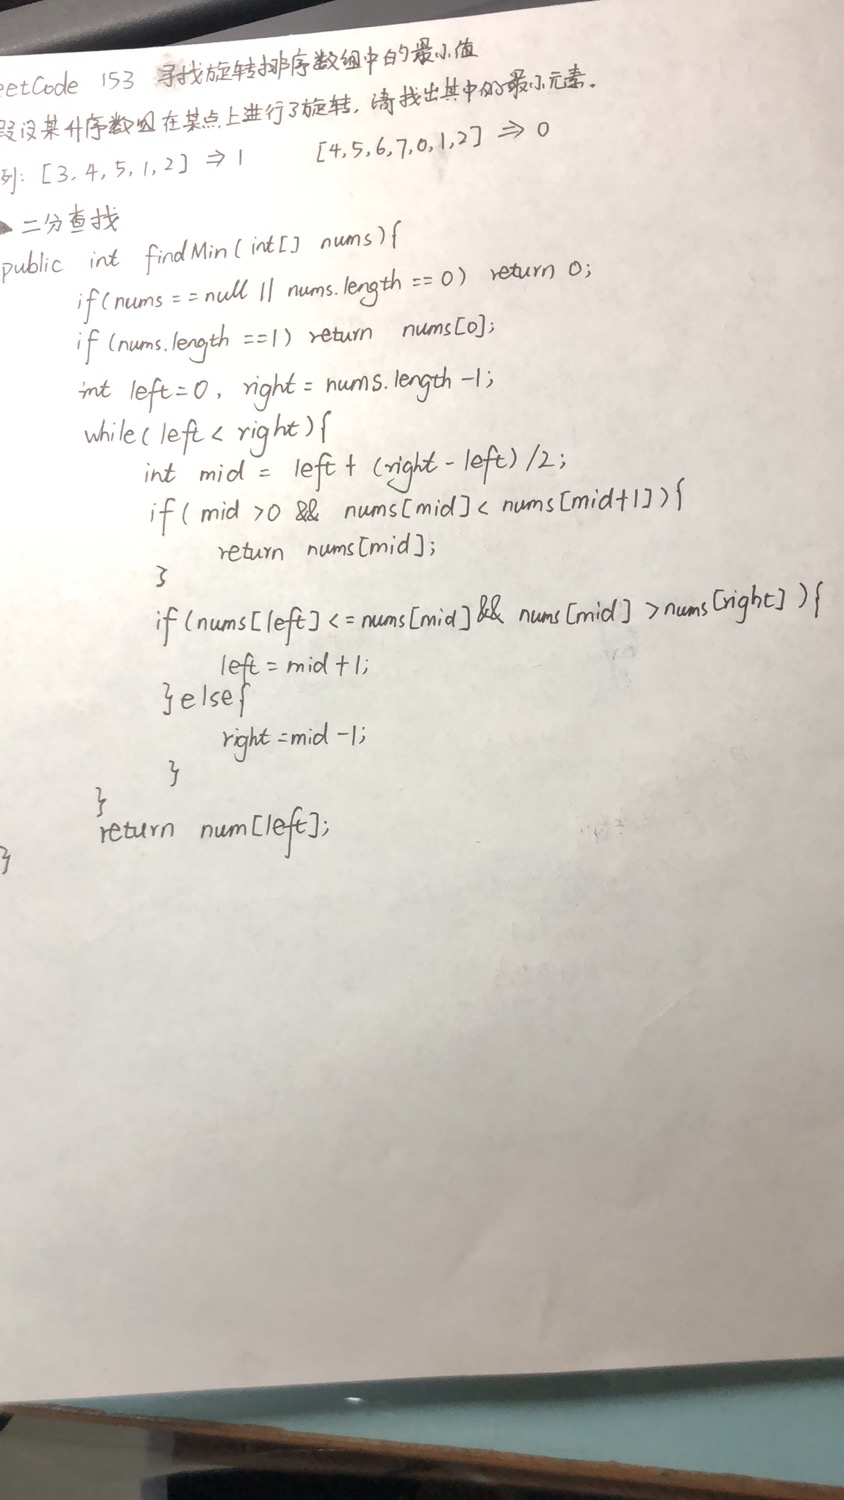 eetCode 153 寻找旋转排序数组中的最小值
设某升序数组在某点上进行了旋转, 请找出其中的最小元素.
列: [3, 4, 5, 1, 2] ⇒ 1 [4, 5, 6, 7, 0, 1, 2] ⇒ 0
二分查找
public int findMin(int[] nums){
if(nums == null || nums.length == 0) return 0;
if(nums.length ==1) return nums[0];
int left=0, right = nums.length -1;
while(left < right){
int mid = left + (right - left) /2;
if( mid >0 && nums[mid] < nums[mid+1]){
return nums[mid];
}
if(nums[left] <= nums[mid] && nums[mid] > nums[right] ){
left = mid +1;
}else{
right =mid -1;
}
}
return num[left];
}